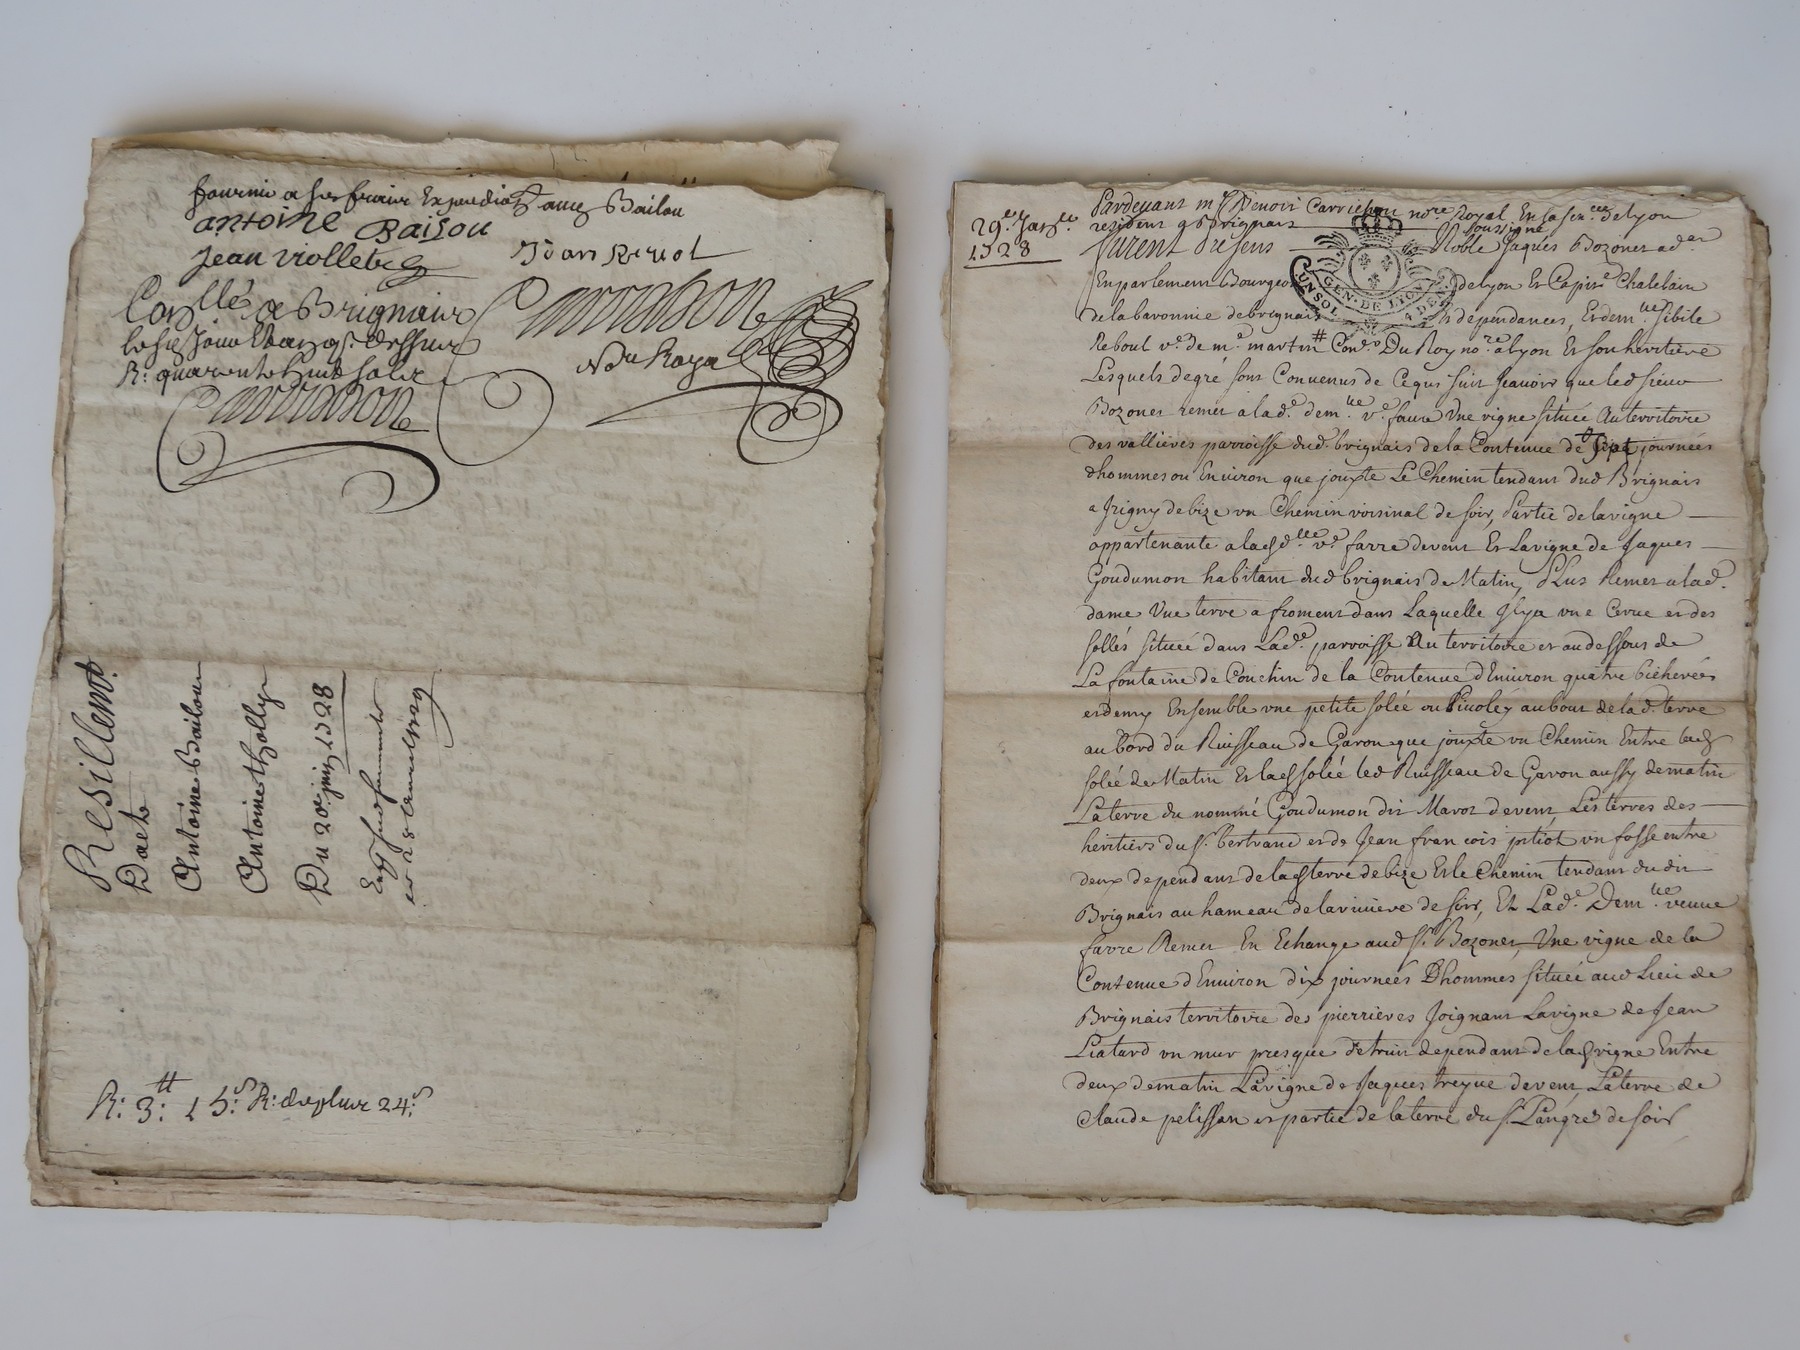 fournie a ses fraix Expedié
antoine Baisou
Jean viollet
Jean Revol
Carrichon
No.re Royal
Con.llé a Brignais
le sieziesme
R: quarente huit sols
Carrichon
Resillem.t
D'acte
Antoine Bailou
Antoine tholly
Du 20e. juin 1728
R: 3:tt 15:s R: de plus 24:s
29.e Janv.er
1728
Pardevant m.e Benoist Carrichon no.re Royal En la sen.cée de lyon
resident a Brignais soussigné
furent Presens Noble Jaques Bozonet ad.at
En parlement Bourgeois de lyon Et Capne. Chatelain
de la baronnie de brignais & dependances, Et dem.lle sibile
Reboul v.e de m.e martin # Con.er Du Roy no.re a lyon Et son heritiere
Lesquels de gré sont Convenus de Ce qui suit scavoir que led sieur
Bozonet remet a lad.e dem.lle v.e favre Une vigne située Au territoire
des vallieres parroisse dud. brignais de la Contenue de sept journées
dhommes ou Environ que jouxte Le Chemin tendant dud Brignais
a Irigny de bize un Chemin voisinal de soir, Partie de la vigne
appartenante a lad.lle v.e favre de vent Et La vigne de Jaques
Goudumon habitant dud brignais de Matin, Plus Remet a lad.
dame Une terre a froment dans Laquelle Il y a une Cerve et des
sollés située dans Lad.e parroisse Au territoire et au dessous de
La fontaine de Couchin de la Contenue d'Environ quatre bicherées
et demy Ensemble une petite solée ou Pivoley au bout de lad. terre
au bord du Ruisseau de Garon que jouxte un Chemin Entre lad
solée de Matin Et lad solée led Ruisseau de Garon aussy de matin
La terre du nommé Goudumon dit Marot de vent, Les terres des
heritiers du s.r bertrand et de Jean francois pitiot un fossé entre
deux dependant de lad terre de bize Et le Chemin tendant du dit
Brignais au hameau de la riviere de soir, Et Lad.e Dem.lle veuve
favre Remet En Echange aud s.r Bozonet, Une vigne de la
Contenue d'Environ dix journeés Dhommes située aud Lieu de
Brignais territoire des pierrieres Joignant La vigne de Jean
Liatard un mur presque detruit dependant de lad vigne Entre
deux de matin La vigne de Jaques treyve de vent, La terre de
Claude pelissan et partie de la terre du s.r Langres de soir
GEN. DE LION